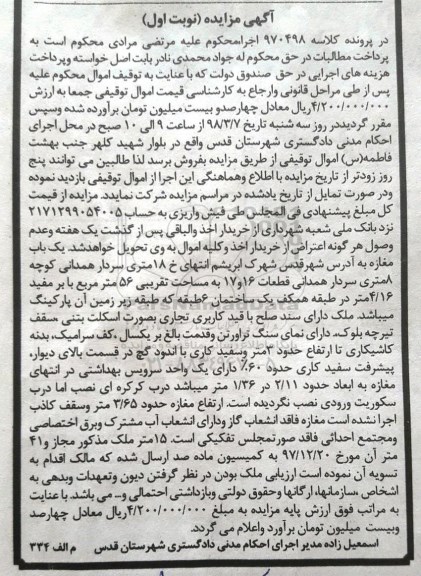 آگهی مزایده (نوبت اول)
در پرونده کلاسه ۹۷۰۴۹۸ اجرا،محکوم علیه مرتضی مرادی محکوم است به
پرداخت مطالبات در حق محکوم له جواد محمدی نادر بابت اصل خواسته وپرداخت
هزینه های اجرایی در حق صندوق دولت که با عنایت به توقیف اموال محکوم علیه
پس از طی مراحل قانونی وارجاع به کارشناسی قیمت اموال توقیفی جمعا به ارزش
۴/۲۰۰/۰۰۰/۰۰۰ریال معادل چهارصدو بیست میلیون تومان برآورده شده وسپس
مقرر گردیددر روز سه شنبه تاریخ ۹۸/۳/۷ از ساعت ۹ الی ۱۰ صبح در محل اجرای
احکام مدنی دادگستری شهرستان قدس واقع در بلوار شهید کلهر جنب بهشت
فاطمه(س) اموال توقیفی از طریق مزایده بفروش برسد لذا طالبین می توانند پنج
روز زودتر از تاریخ مزایده با اطلاع وهماهنگی این اجرا از اموال توقیفی بازدید نموده
ودر صورت تمایل از تاریخ یادشده در مراسم مزایده شرکت نمایند. مزایده از قیمت
کل مبلغ پیشنهادی فی المجلس طی فیش واریزی به حساب ۲۱۷۱۳۹۹۰۵۴۰۰۵
نزد بانک ملی شعبه شهرداری از خریدار اخذ والباقی پس از گذشت یک هفته وعدم
وصول هر گونه اعتراض از خریدار اخذ و کلیه اموال به وی تحویل خواهدشد. یک باب
مغازه به آدرس شهرقدس شهرک ابریشم انتهای خ ۱۸متری سردار همدانی کوچه
۸متری سردار همدانی قطعات ۱۶و۱۷ به مساحت تقریبی ۵۶ متر مربع با بر مفید
۴/۱۶متر در طبقه همکف یک ساختمان ۶طبقه که طبقه زیر زمین آن پارکینگ
میباشد. ملک دارای سند صلح با قید کاربری تجاری بصورت اسکلت بتنی ،سقف
تیرچه بلوک، دارای نمای سنگ تراورتن وقدمت بالغ بر یکسال ،کف سرامیک، بدنه
کاشیکاری تا ارتفاع حدود ۲متر وسفید کاری با اندود گچ در قسمت بالای دیوار،
پیشرفت سفید کاری حدود ۶۰٪ دارای یک واحد سرویس بهداشتی در انتهای
مغازه به ابعاد حدود ۲/۱۱ در ۱/۳۶ متر میباشد درب کرکره ای نصب اما درب
سکوریت ورودی نصب نگردیده است. ارتفاع مغازه حدود ۳/۶۵ متر وسقف کاذب
اجرا نشده است مغازه فاقد انشعاب گاز ودارای انشعاب آب مشترک وبرق اختصاصی
ومجتمع احداثی فاقد صورتمجلس تفکیکی است. ۱۵متر ملک مذکور مجاز و۴۱
متر آن مورخ ۹۷/۱۲/۲۰ به کمیسیون ماده صد ارسال شده که مالک اقدام به
تسویه آن نموده است ارزیابی ملک بودن در نظر گرفتن دیون وتعهدات وبدهی به
اشخاص ،سازمانها، ارگانها وحقوق دولتی وبازداشتی احتمالی و... می باشد. با عنایت
به مراتب فوق ارزش پایه مزایده به مبلغ ۴/۲۰۰/۰۰۰/۰۰۰ریال معادل چهارصد
وبیست میلیون تومان برآورد واعلام می گردد.
اسمعیل زاده مدیر اجرای احکام مدنی دادگستری شهرستان قدس م الف ۳۳۴